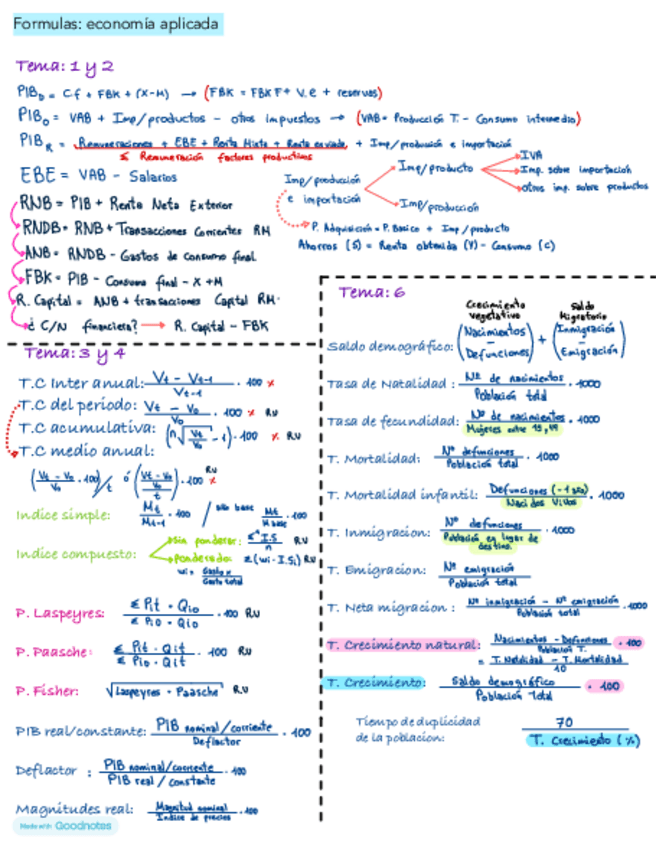 Formulas: economía aplicada
Tema: 1 y 2
PIB_D = Cf + FBK + (X-M) → (FBK = FBKF + V.e + reservas)
PIB_O = VAB + Imp/productos - otros impuestos → (VAB = Producción T. - Consumo intermedio)
PIB_R = Remuneraciones + EBE + Renta Mixta + Renta enviada + Imp/producción e importación
Σ Remuneración factores productivos
EBE = VAB - Salarios
Imp/producción e importación
Imp/producto
IVA
Imp. sobre importación
otros imp. sobre productos
Imp/producción
P. Adquisición = P. Básico + Imp/producto
Ahorros (S) = Renta obtenida (Y) - Consumo (C)
RNB = PIB + Renta Neta Exterior
RNDB = RNB + Transacciones Corrientes RM
ANB = RNDB - Gastos de consumo final
FBK = PIB - Consumo final - X + M
R. Capital = ANB + transacciones Capital RM.
¿ C/N financiera? → R. Capital - FBK
Tema: 3 y 4
T.C Inter anual: Vt - Vt-1 / Vt-1 · 100 %
T.C del periodo: Vt - Vo / Vo · 100 % RU
T.C acumulativa: (n√Vt/Vo - 1) · 100 % RU
T.C medio anual:
(Vt - Vo / Vo · 100)/t ó (Vt - Vo / Vo / t) · 100 % RU
Indice simple: Mt / Mt-1 · 100 / año base Mt / M base · 100
Indice compuesto:
Sin ponderar: Σ I.S / n RU
Ponderado: Σ(wi · I.Si) RU
wi = Gasto x / Gasto total
P. Laspeyres: Σ Pit · Qio / Σ Pio · Qio · 100 RU
P. Paasche: Σ Pit · Qit / Σ Pio · Qit · 100 RU
P. Fisher: √Laspeyres · Paasche RU
PIB real/constante: PIB nominal/corriente / Deflactor · 100
Deflactor : PIB nominal/corriente / PIB real / constante · 100
Magnitudes real: Magnitud nominal / Indice de precios · 100
Made with Goodnotes
Tema: 6
Crecimiento vegetativo
Saldo Migratorio
Saldo demográfico: (Nacimientos - Defunciones) + (Inmigración - Emigración)
Tasa de Natalidad : Nº de nacimientos / Población total · 1000
Tasa de fecundidad: Nº de nacimientos / Mujeres entre 15, 49 · 1000
T. Mortalidad: Nº defunciones / Población total · 1000
T. Mortalidad infantil: Defunciones (-1 año) / Nacidos Vivos · 1000
T. Inmigracion: Nº defunciones / Población en lugar de destino. · 1000
T. Emigracion: Nº emigración / Población total
T. Neta migracion : Nº inmigración - Nº emigración / Población total · 1000
T. Crecimiento natural: Nacimientos - Defunciones / Población T. · 100
= T. Natalidad - T. Mortalidad / 10
T. Crecimiento: Saldo demográfico / Población Total · 100
Tiempo de duplicidad de la poblacion: 70 / T. Crecimiento (%)